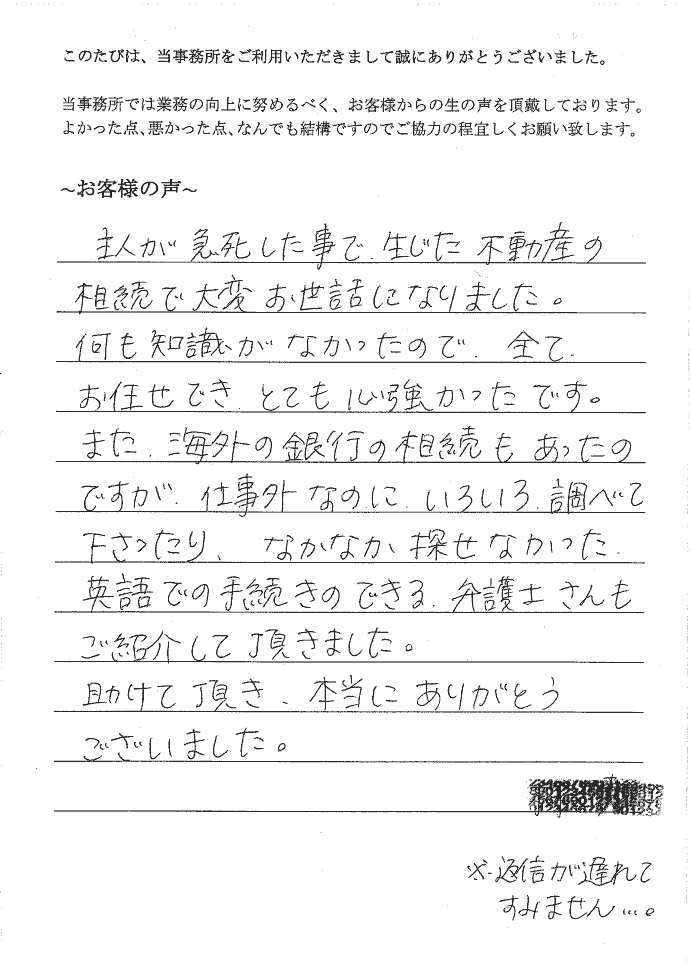 このたびは、当事務所をご利用いただきまして誠にありがとうございました。
当事務所では業務の向上に努めるべく、お客様からの生の声を頂戴しております。
よかった点、悪かった点、なんでも結構ですのでご協力の程宜しくお願い致します。
~お客様の声~
主人が急死した事で、生じた不動産の
相続で大変お世話になりました。
何も知識がなかったので、全て、
お任せでき、とても心強かったです。
また、海外の銀行の相続もあったの
ですが、仕事外なのに、いろいろ、調べて
下さったり、なかなか探せなかった、
英語での手続きのできる、弁護士さんも
ご紹介して頂きました。
助けて頂き、本当にありがとう
ございました。
※返信が遅れて
すみません…。